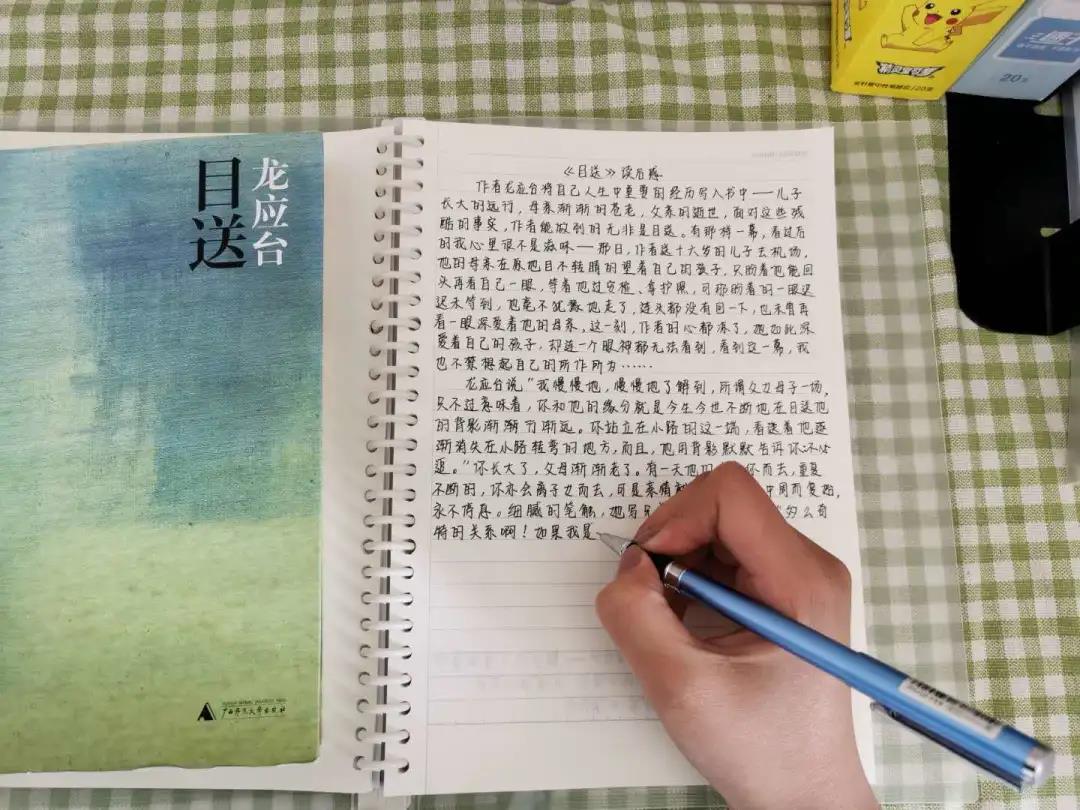 目送
龙应台
广西师范大学出版社
20支
《目送》读后感
作者龙应台将自己人生中重要的经历写入书中——儿子
长大的远行，母亲渐渐的苍老，父亲的逝世，面对这些残
酷的事实，作者能做到的无非是目送。有那样一幕，看过后
的我心里很不是滋味——那日，作者送十六岁的儿子去机场，
他的母亲在原地目不转睛的望着自己的孩子，只盼着他能回
头再看自己一眼，等着他过安检、拿护照，可称盼着的一眼迟
迟未等到，他毫不犹豫地走了，连头都没有回一下，也未曾再
看一眼深爱着他的母亲，这一刻，作者的心都冻了，她如此深
爱着自己的孩子，却连一个眼神都无法看到，看到这一幕，我
也不禁想起自己的所作所为……
龙应台说“我慢慢地，慢慢地了解到，所谓父女母子一场，
只不过意味着，你和他的缘分就是今生今世不断地在目送他
的背影渐渐行渐远。你站立在小路的这一端，看送着他逐
渐消失在小路转弯的地方，而且，他用背影默默告诉你：不必
追。”你长大了，父母渐渐老了。有一天他们 你而去，重复
不断的，你亦会离子女而去，可是亲情 中周而复始，
永不停息。细腻的笔触，她写 多么奇
特的关系啊！如果我是